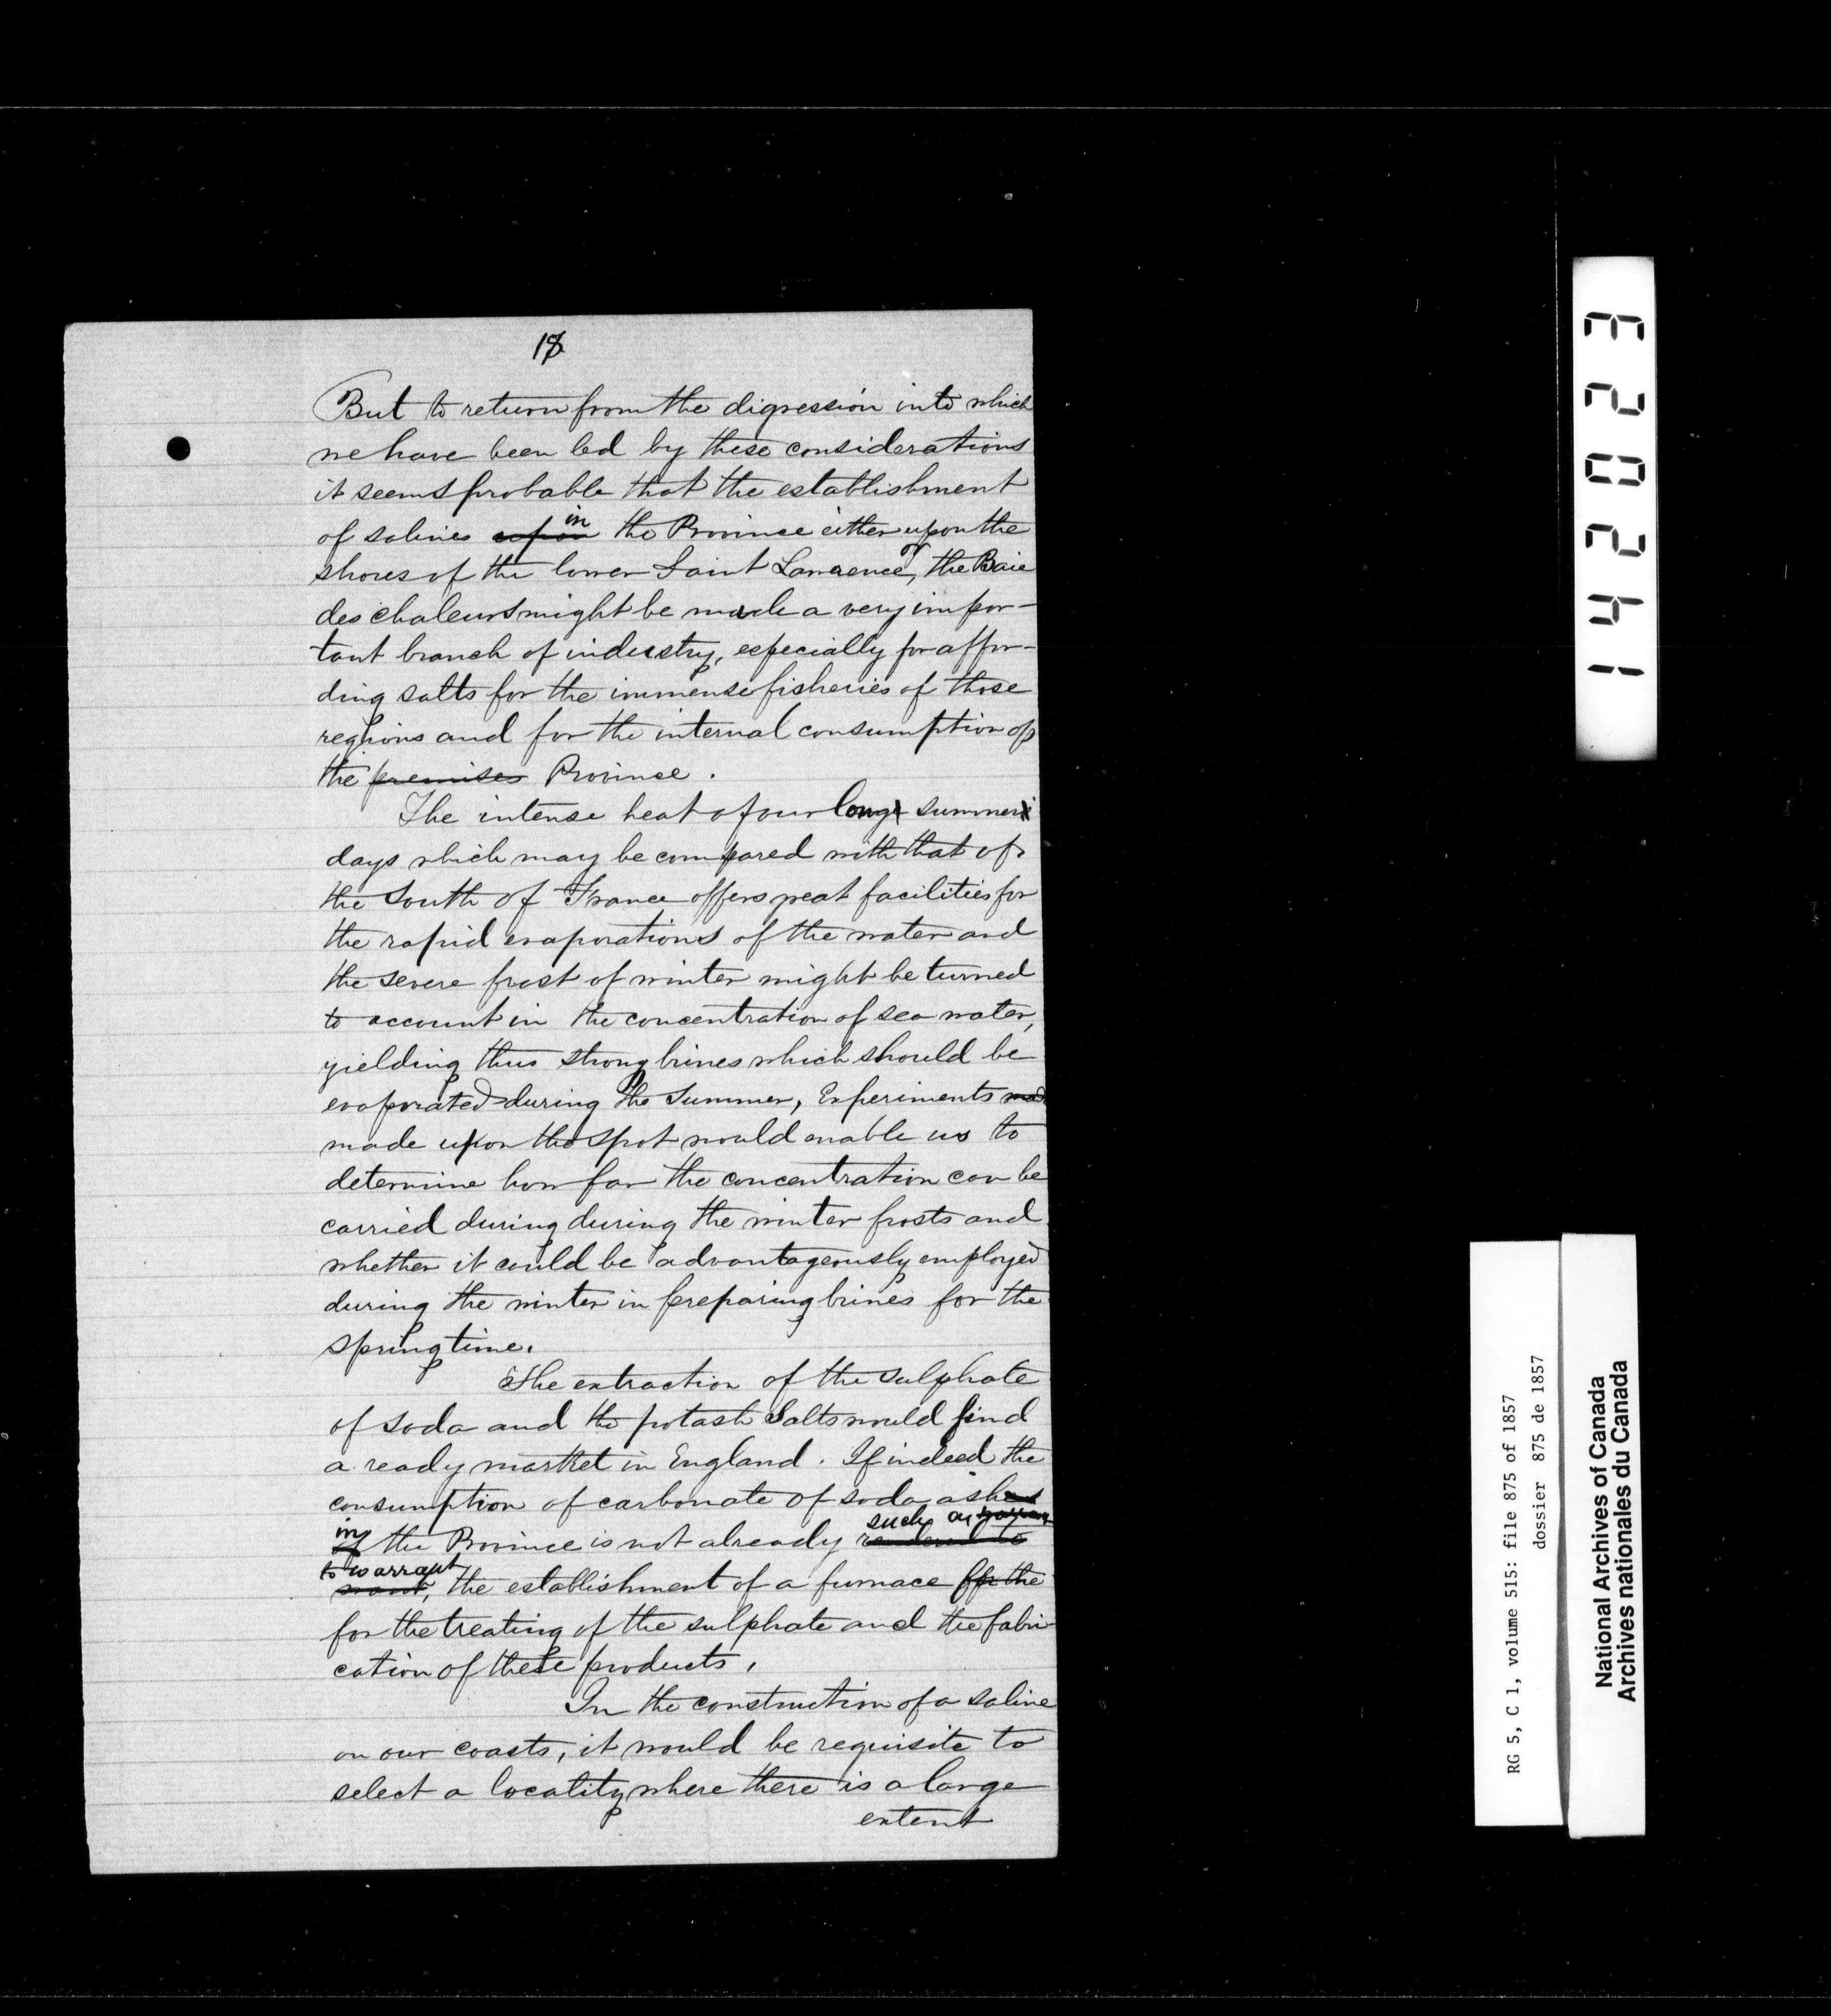 18
But to return from the digression into which
we have been led by these considerations
it seems probable that the establishment
of salines upon in the Province either upon the
shores of the lower Saint Lawrence, or the Baie
des chaleurs might be made a very impor-
tant branch of industry, especially for affor-
ding salts for the immense fisheries of those
regions and for the internal consumption of
the premises Province.
The intense heat of our long summer
days which may be compared with that of
the South of France offers great facilities for
the rapid evaporations of the water and
the severe frost of winter might be turned
to account in the concentration of sea water,
yielding thus strong brines which should be
evaporated during the Summer, Experiments mad
made upon the spot would enable us to
determine how far the concentration can be
carried during during the winter frosts and
whether it could be advantageously employed
during the winter in preparing brines for the
spring time.
The extraction of the sulphate
of soda and the potash Salts would find
a ready market in England. If indeed the
consumption of carbonate of soda ashes
such as
in of the Province is not already rendered
to warrant, the establishment of a furnace for the
for the treating of the sulphate and the fabri-
cation of these products,
In the construction of a saline
on our coasts, it would be requisite to
select a locality where there is a large
extent
142023
RG 5, C 1, volume 515: file 875 of 1857
dossier 875 de 1857
National Archives of Canada
Archives nationales du Canada